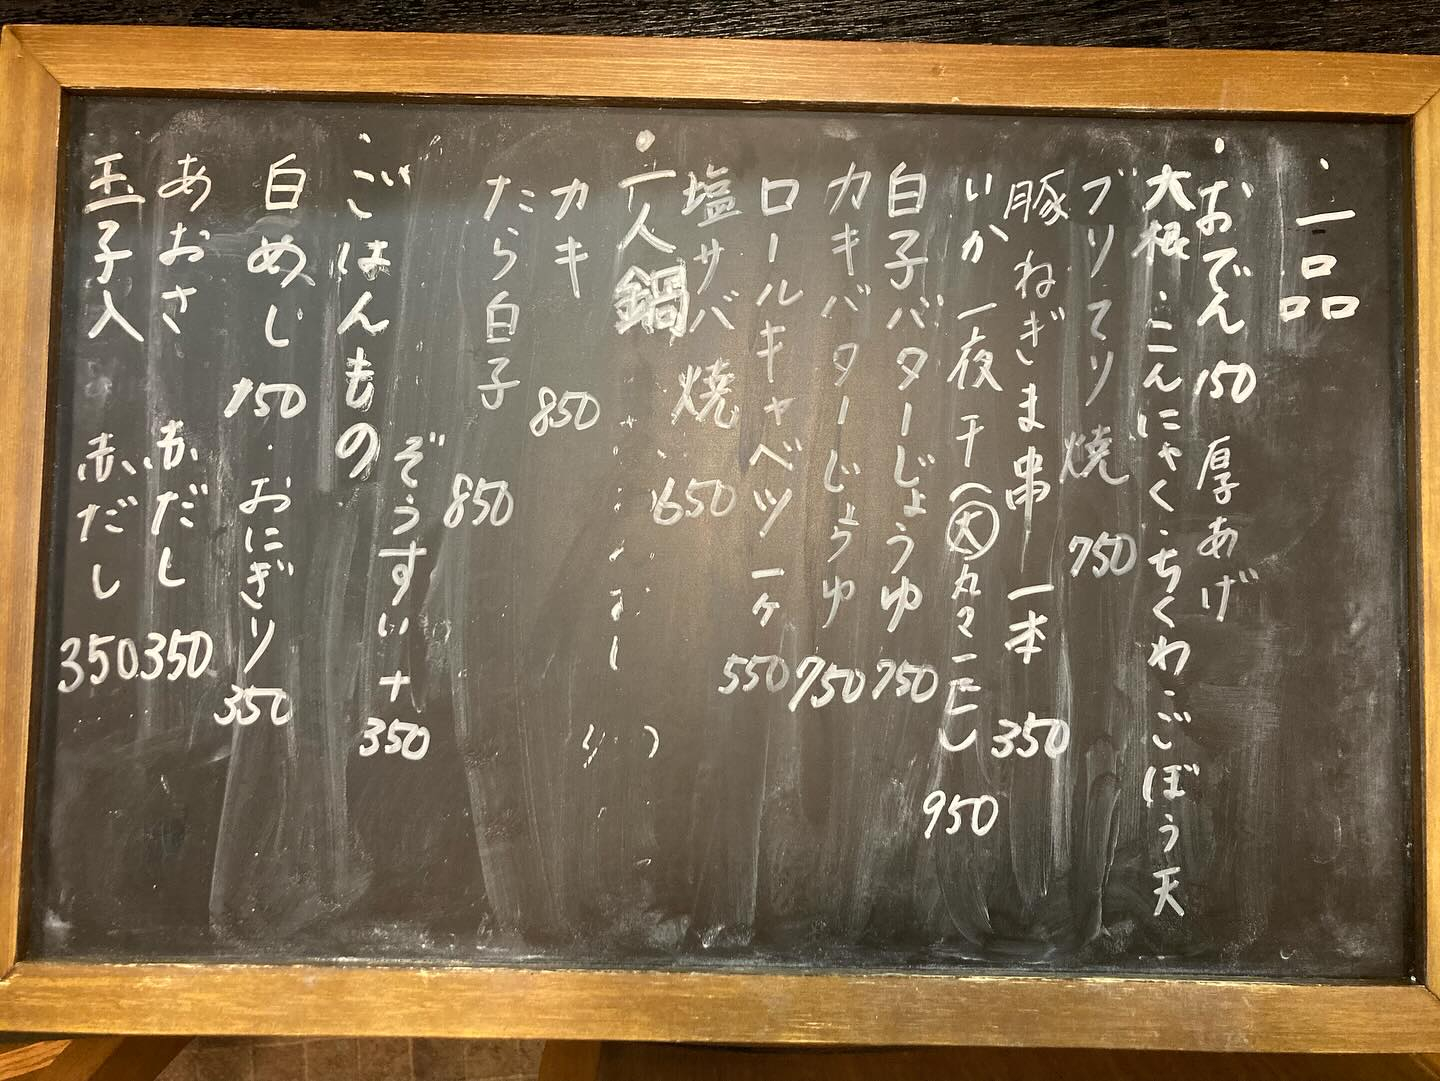 ・一品
・おでん 150 厚あげ
大根・こんにゃく・ちくわ・ごぼう天
ブリてり焼 750
豚ねぎま串 一本 350
いか一夜干(大)丸々一匹 950
白子バターじょうゆ 750
カキバターじょうゆ 750
ロールキャベツ 一ヶ 550
塩サバ焼 650
・一人鍋
カキ 850
たら白子 850
ぞうすい+350
・ごはんもの
白めし 150・おにぎり 350
あおさ 赤だし 350
玉子入 赤だし 350